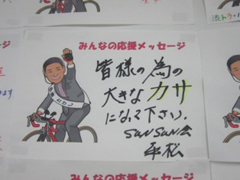 みんなの応援メッセージ
皆様の為の
大きなカサ
になって下さい。
SUNSUN会
平松
みんなの応援メッセージ